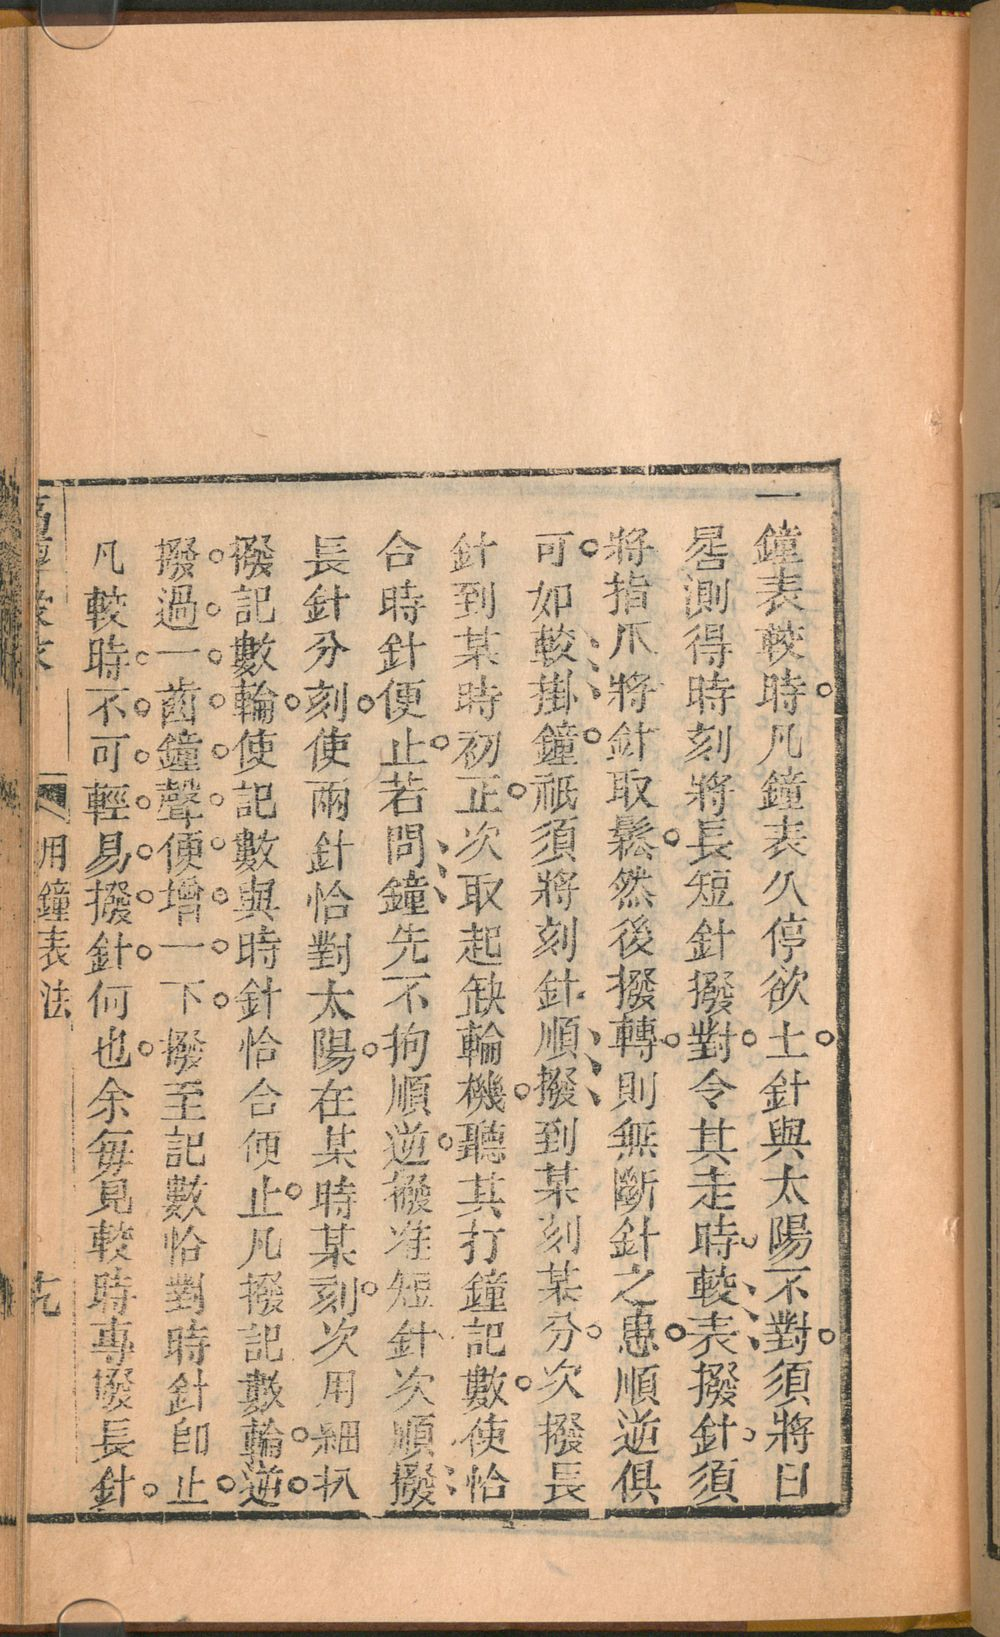 一鐘表較時凡鐘表久停欲上針與太陽不對須將日
晷測得時刻將長短針撥對令其走時較表撥針須
將指爪將針取鬆然後撥轉則無斷針之患順逆俱
可如較掛鐘祇須將刻針順撥到某刻某分次撥長
針到某時初正次取起缺輪機聽其打鐘記數使恰
合時針便止若問鐘先不拘順逆撥准短針次順撥
長針分刻使兩針恰對太陽在某時某刻次用細扒
撥記數輪使記數與時針恰合便止凡撥記數輪逆
撥過一齒鐘聲便增一下撥至記數恰對時針卽止
凡較時不可輕易撥針何也余每見較時專撥長針
用鐘表法